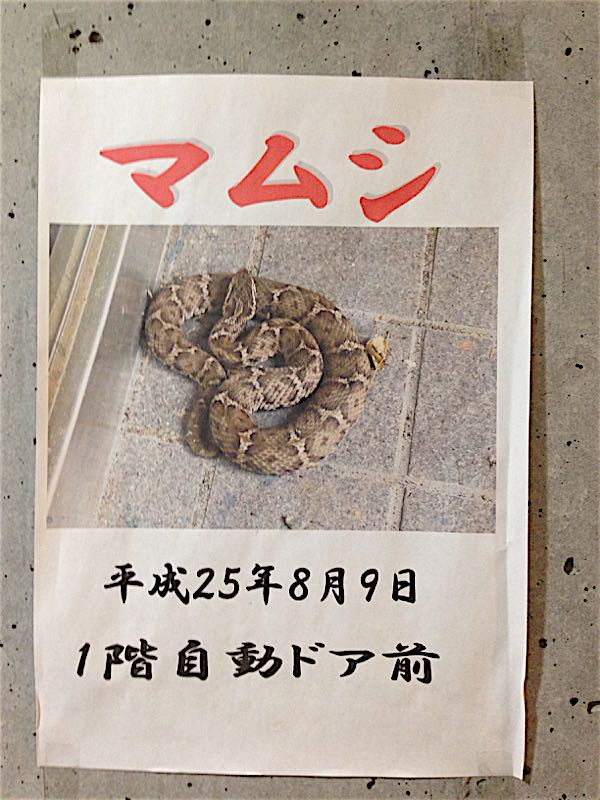 マムシ
平成25年8月9日
1階自動ドア前